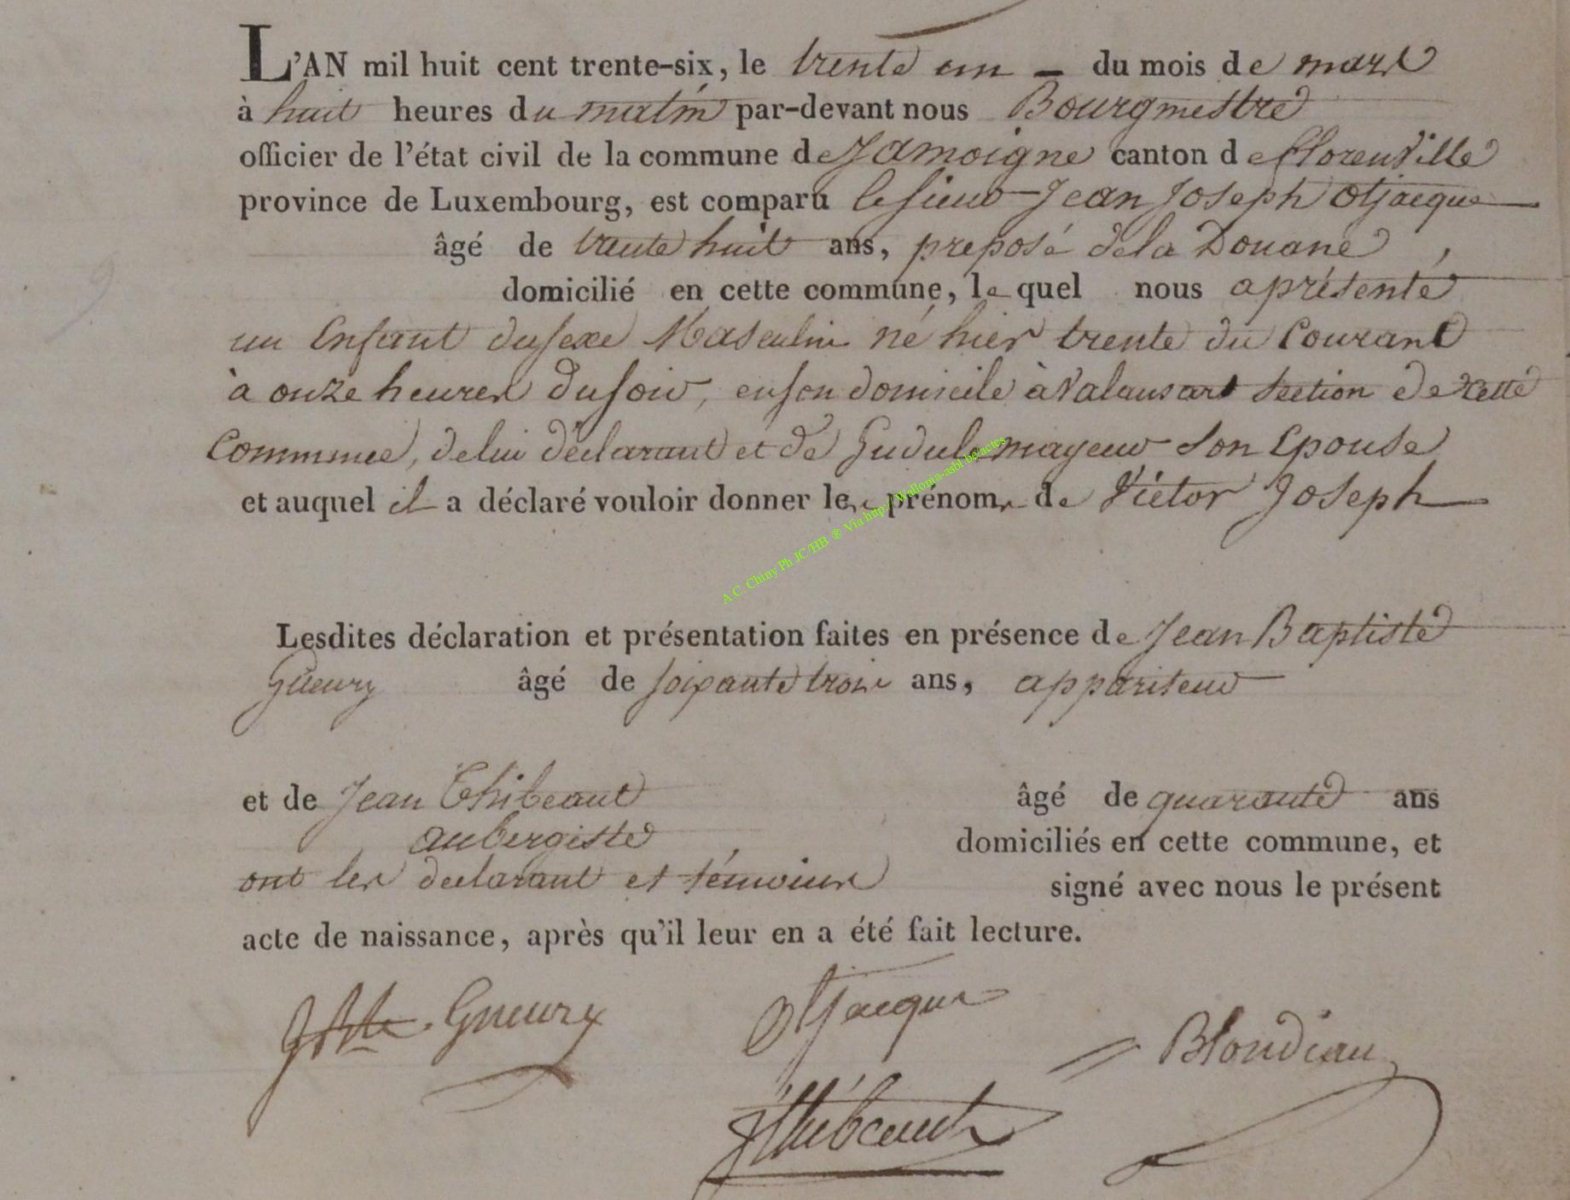 L'AN mil huit cent trente-six, le trente un - du mois de mars
à huit heures du matin par-devant nous Bourgmestre
officier de l'état civil de la commune de Jamoigne canton de Florenville
province de Luxembourg, est comparu le sieur Jean Joseph Otjacque
âgé de trente huit ans, preposé de la Douane,
domicilié en cette commune, lequel nous a présenté
un Enfant du sexe Masculin né hier trente du Courant
à onze heures du soir, en son domicile à Valansart Section de cette
Commune, de lui déclarant et de Gudule mayeur son Epouse
et auquel il a déclaré vouloir donner les prénoms de Victor Joseph
A C. Chiny Ph JC/HB @ Via
Lesdites déclaration et présentation faites en présence de Jean Baptiste
Gueury âgé de soixante trois ans, appariteur
et de Jean Thibeaut âgé de quarante ans
aubergiste, domiciliés en cette commune, et
ont les declarant et témoins signé avec nous le présent
acte de naissance, après qu'il leur en a été fait lecture.
JBte. Gueury Otjacque Blondiau
JThibeaut